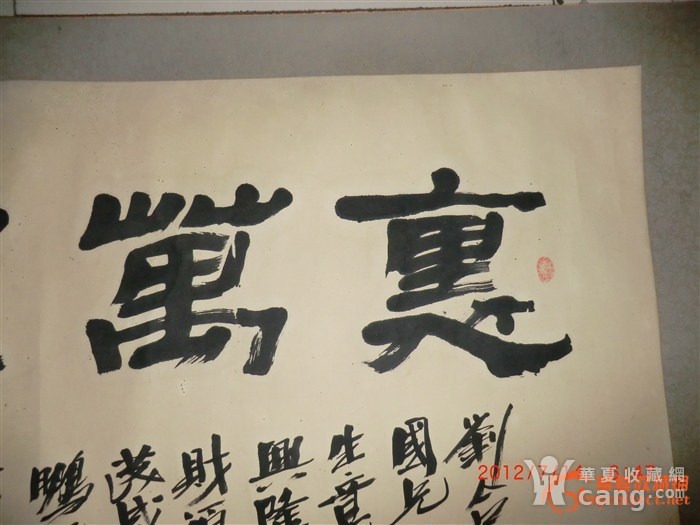 裏萬
劉
國兄
生意
興隆
財源
茂盛
鵬
2012/7
華夏收藏網
cang.com